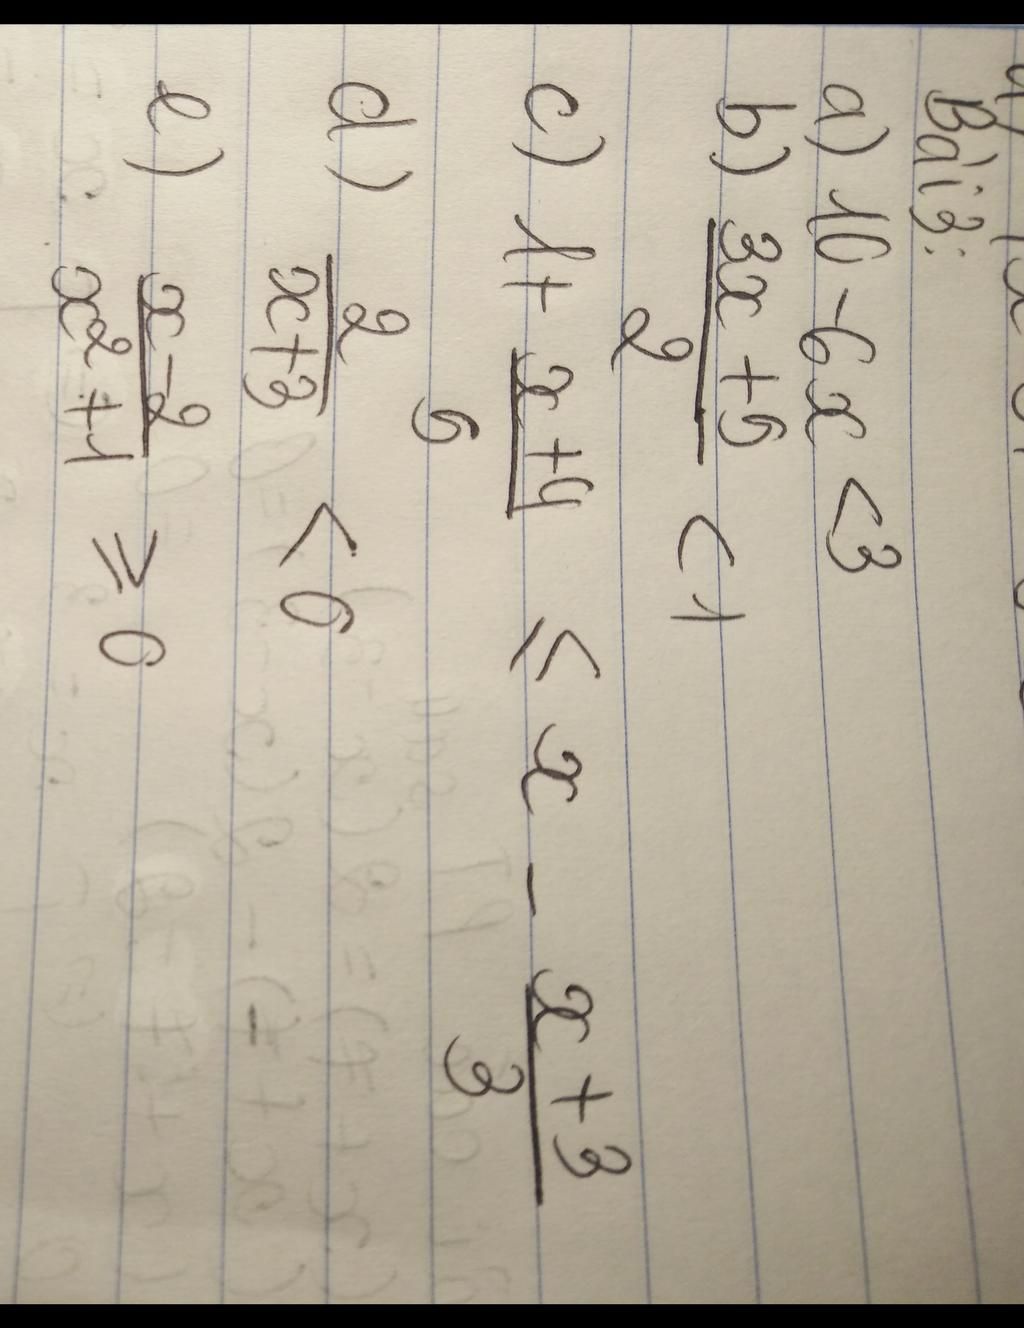 Bài 3:
a) 10 - 6x < 3
b) (3x + 5)/2 < 1
c) 1 + (x + 4)/5 ≤ x - (x + 3)/3
d) 2/(x + 3) < 0
e) (x - 2)/(x² + 1) ≥ 0